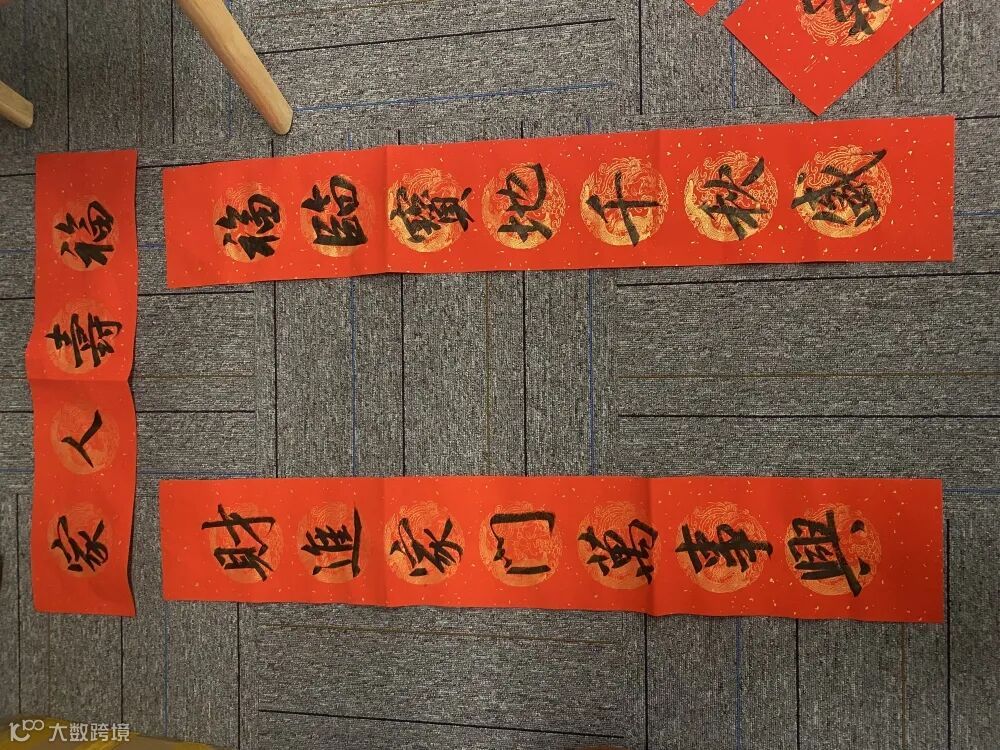 福臨寶地千秋盛
財進家门萬事興
福壽人家
大数跨境